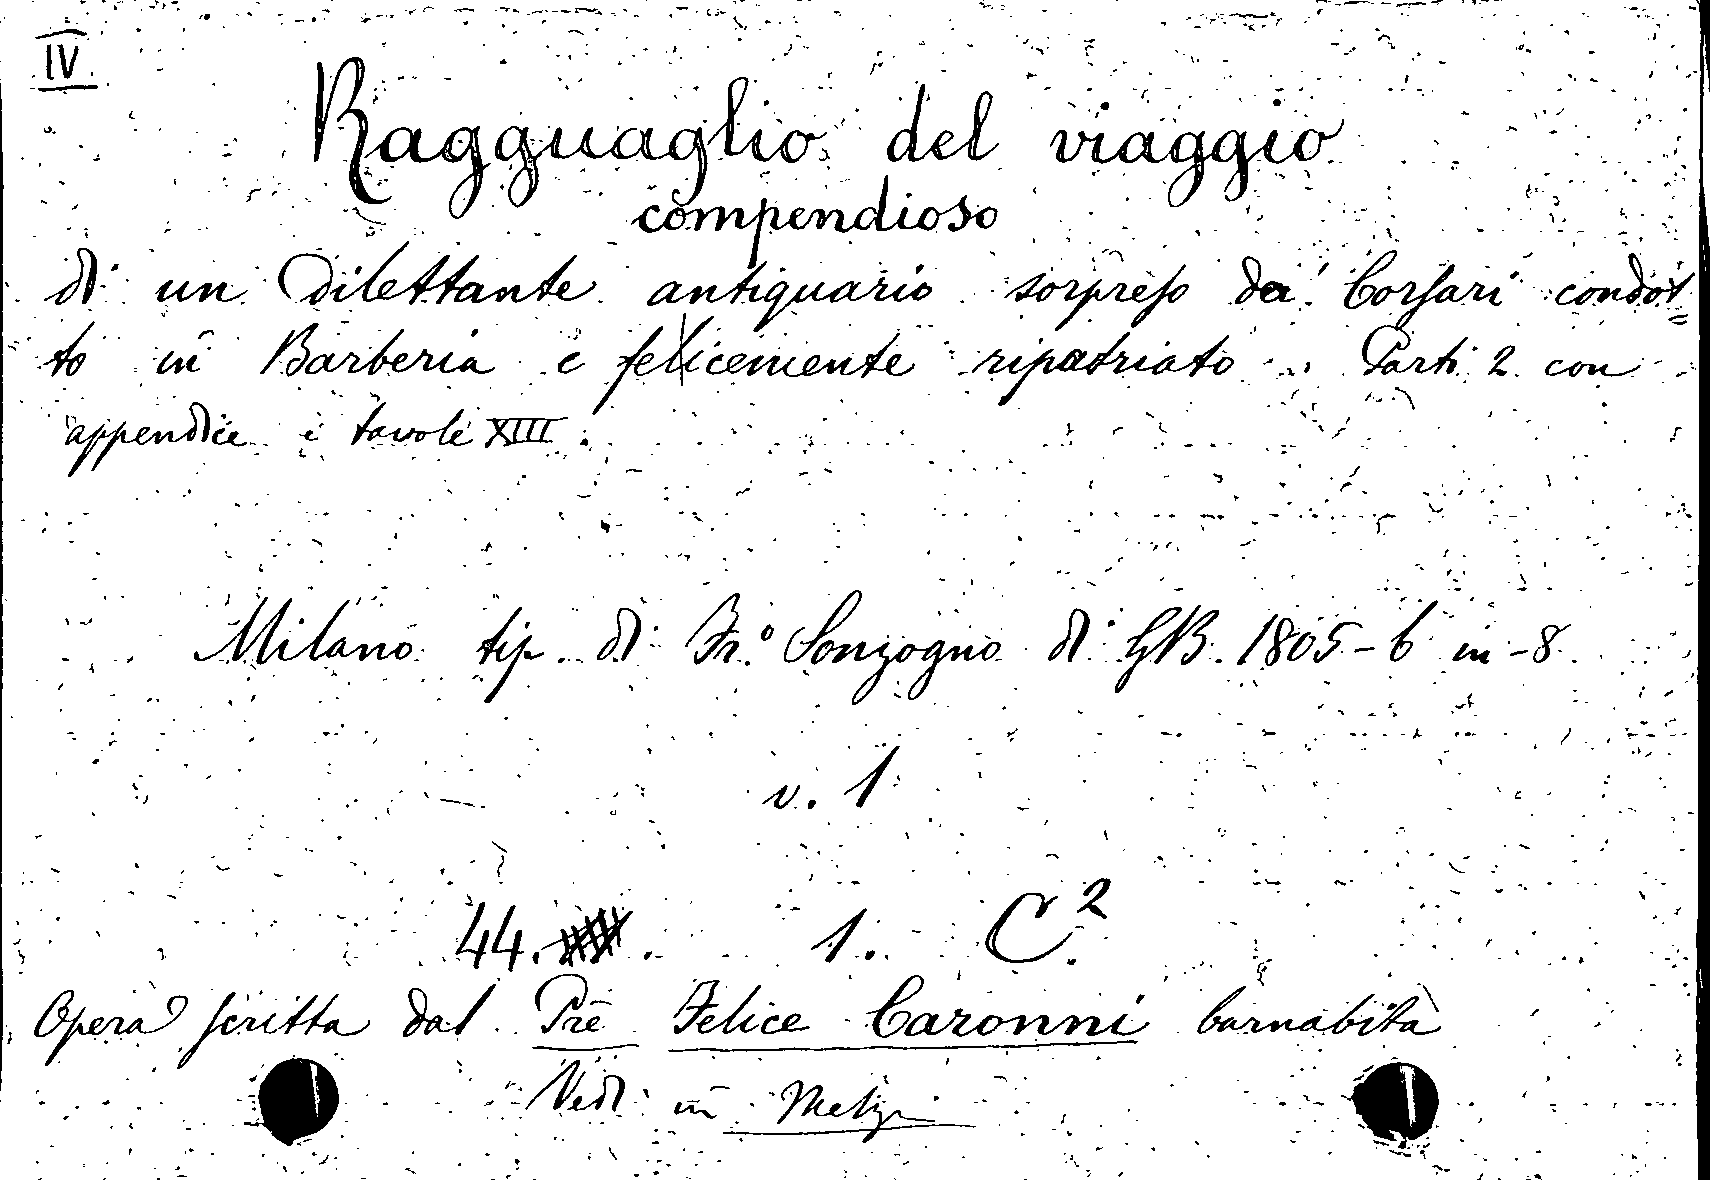 IV
Ragguaglio del viaggio
compendioso
di un Dilettante antiquario sorpreso da' Corsari condot=
to in Barberia e felicemente ripatriato. Parti 2 con
appendice e tavole XIII.
Milano tip. di Fr.º Sonzogno di GB. 1805-6 in-8.
v. 1
44. 1. C².
Opera scritta dal Prē Felice Caronni barnabita
Vedi in Melzi